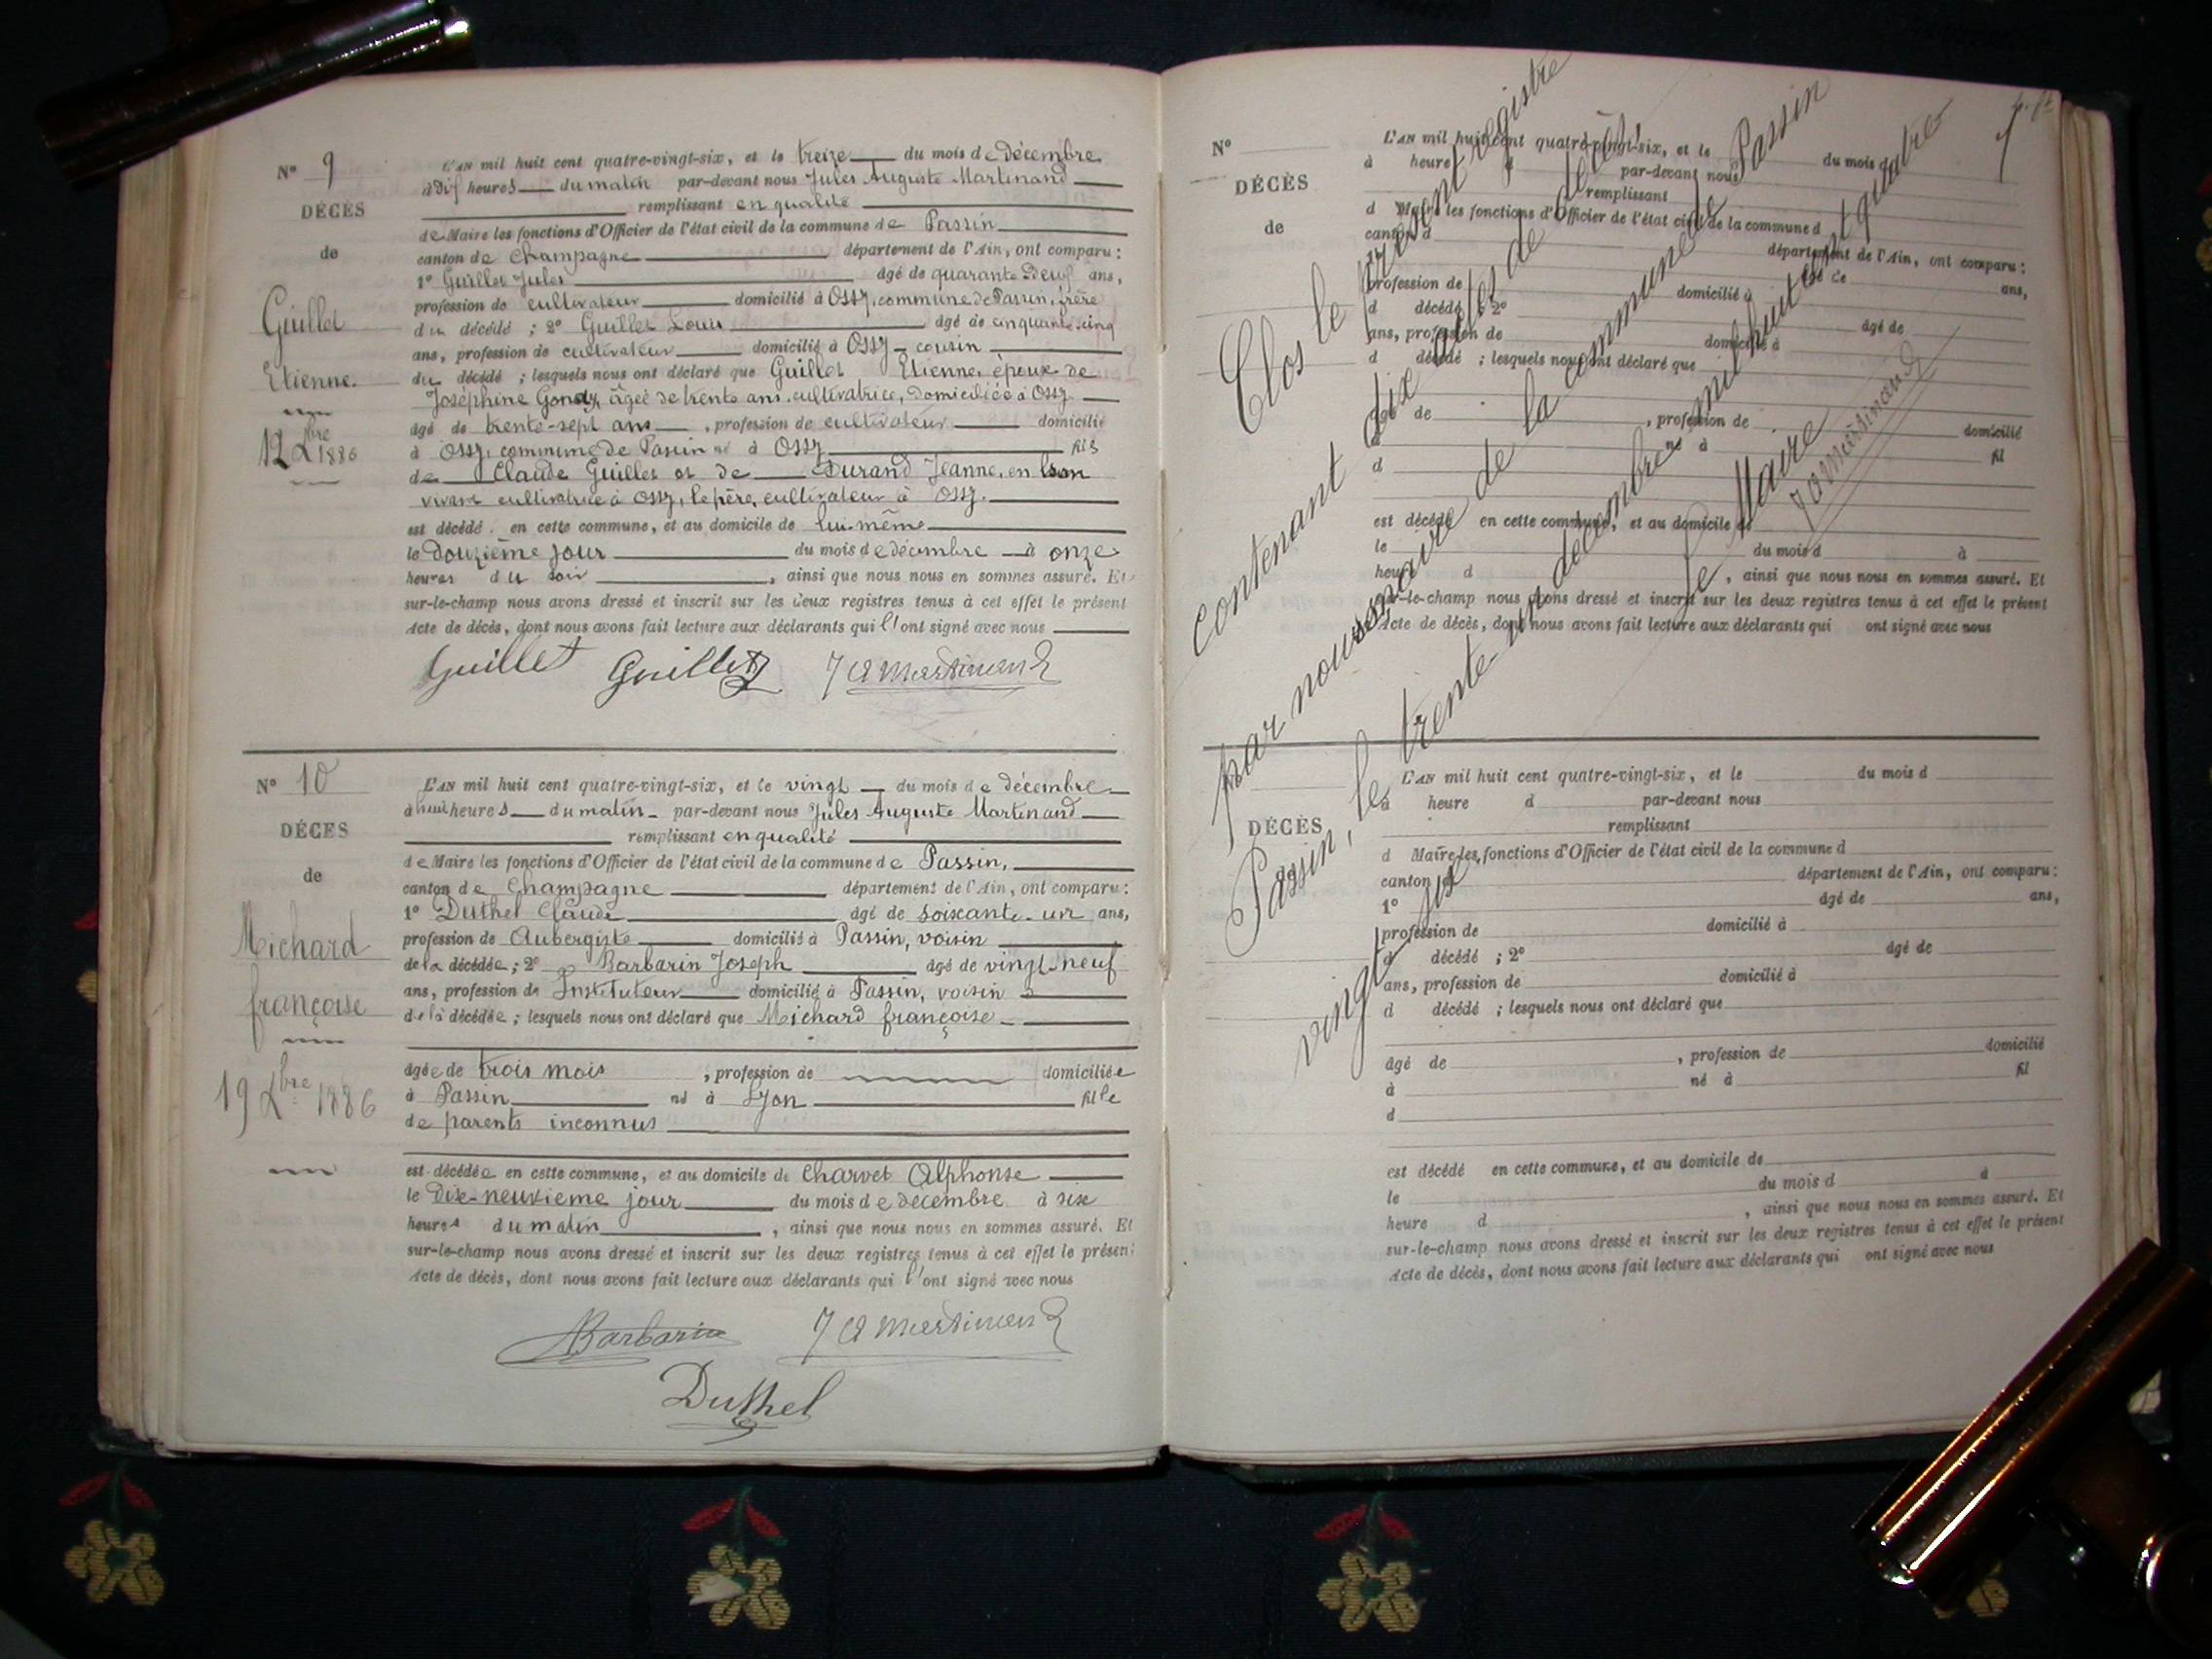 N° 9
DÉCÈS
de
Guillet
Etienne.
12 Xbre 1886
L'AN mil huit cent quatre-vingt-six, et le treize du mois de décembre
à dix heures du matin par-devant nous Jules Auguste Martinand
remplissant en qualité
de Maire les fonctions d'Officier de l'état civil de la commune de Passin
canton de Champagne département de l'Ain, ont comparu :
1° Guillet Jules âgé de quarante deux ans,
profession de cultivateur domicilié à Ossy, commune de Passin, frère
du décédé ; 2° Guillet Louis âgé de cinquante-cinq
ans, profession de cultivateur domicilié à Ossy - cousin
du décédé ; lesquels nous ont déclaré que Guillet Etienne, époux de
Joséphine Gondy, âgée de trente ans, cultivatrice, domiciliée à Ossy
âgé de trente-sept ans , profession de cultivateur domicilié
à Ossy, commune de Passin né à Ossy fils
de Claude Guillet et de Durand Jeanne, en son
vivant cultivatrice à Ossy, le père, cultivateur à Ossy.
est décédé en cette commune, et au domicile de lui-même
le douzième jour du mois de décembre à onze
heures du soir , ainsi que nous nous en sommes assuré. Et
sur-le-champ nous avons dressé et inscrit sur les deux registres tenus à cet effet le présent
Acte de décès, dont nous avons fait lecture aux déclarants qui l'ont signé avec nous
Guillet Guillet J A Martinand
N° 10
DÉCÈS
de
Michard
françoise
19 Xbre 1886
L'AN mil huit cent quatre-vingt-six, et le vingt du mois de décembre
à huit heures du matin par-devant nous Jules Auguste Martinand
remplissant en qualité
de Maire les fonctions d'Officier de l'état civil de la commune de Passin,
canton de Champagne département de l'Ain, ont comparu :
1° Duthel Claude âgé de soixante-un ans,
profession de Aubergiste domicilié à Passin, voisin
de la décédée ; 2° Barbarin Joseph âgé de vingt-neuf
ans, profession de Instituteur domicilié à Passin, voisin
de la décédée ; lesquels nous ont déclaré que Michard françoise
âgée de trois mois , profession de domiciliée
à Passin né à Lyon fille
de parents inconnus
est décédée en cette commune, et au domicile de Charvet Alphonse
le Dix-neuvième jour du mois de décembre à six
heures du matin , ainsi que nous nous en sommes assuré. Et
sur-le-champ nous avons dressé et inscrit sur les deux registres tenus à cet effet le présent
Acte de décès, dont nous avons fait lecture aux déclarants qui l'ont signé avec nous
Barbarin J A Martinand
Duthel
Clos le présent registre
contenant dix actes de décès
par nous maire de la commune de Passin
Passin, le trente-un décembre mil huit cent quatre
vingt six
Le Maire
J A Martinand
N°
DÉCÈS
de
L'AN mil huit cent quatre-vingt-six, et le du mois d
à heure d par-devant nous
remplissant
d Maire les fonctions d'Officier de l'état civil de la commune d
canton d département de l'Ain, ont comparu :
âgé de ans,
profession de domicilié à
d décédé ; 2° âgé de
ans, profession de domicilié à
d décédé ; lesquels nous ont déclaré que
âgé de , profession de domicilié
à né à fil
d
est décédé en cette commune, et au domicile de
le du mois d à
heure d , ainsi que nous nous en sommes assuré. Et
sur-le-champ nous avons dressé et inscrit sur les deux registres tenus à cet effet le présent
Acte de décès, dont nous avons fait lecture aux déclarants qui ont signé avec nous
DÉCÈS
de
L'AN mil huit cent quatre-vingt-six, et le du mois d
à heure d par-devant nous
remplissant
d Maire les fonctions d'Officier de l'état civil de la commune d
canton d département de l'Ain, ont comparu :
1° âgé de ans,
profession de domicilié à
d décédé ; 2° âgé de
ans, profession de domicilié à
d décédé ; lesquels nous ont déclaré que
âgé de , profession de domicilié
à né à fil
d
est décédé en cette commune, et au domicile de
le du mois d à
heure d , ainsi que nous nous en sommes assuré. Et
sur-le-champ nous avons dressé et inscrit sur les deux registres tenus à cet effet le présent
Acte de décès, dont nous avons fait lecture aux déclarants qui ont signé avec nous